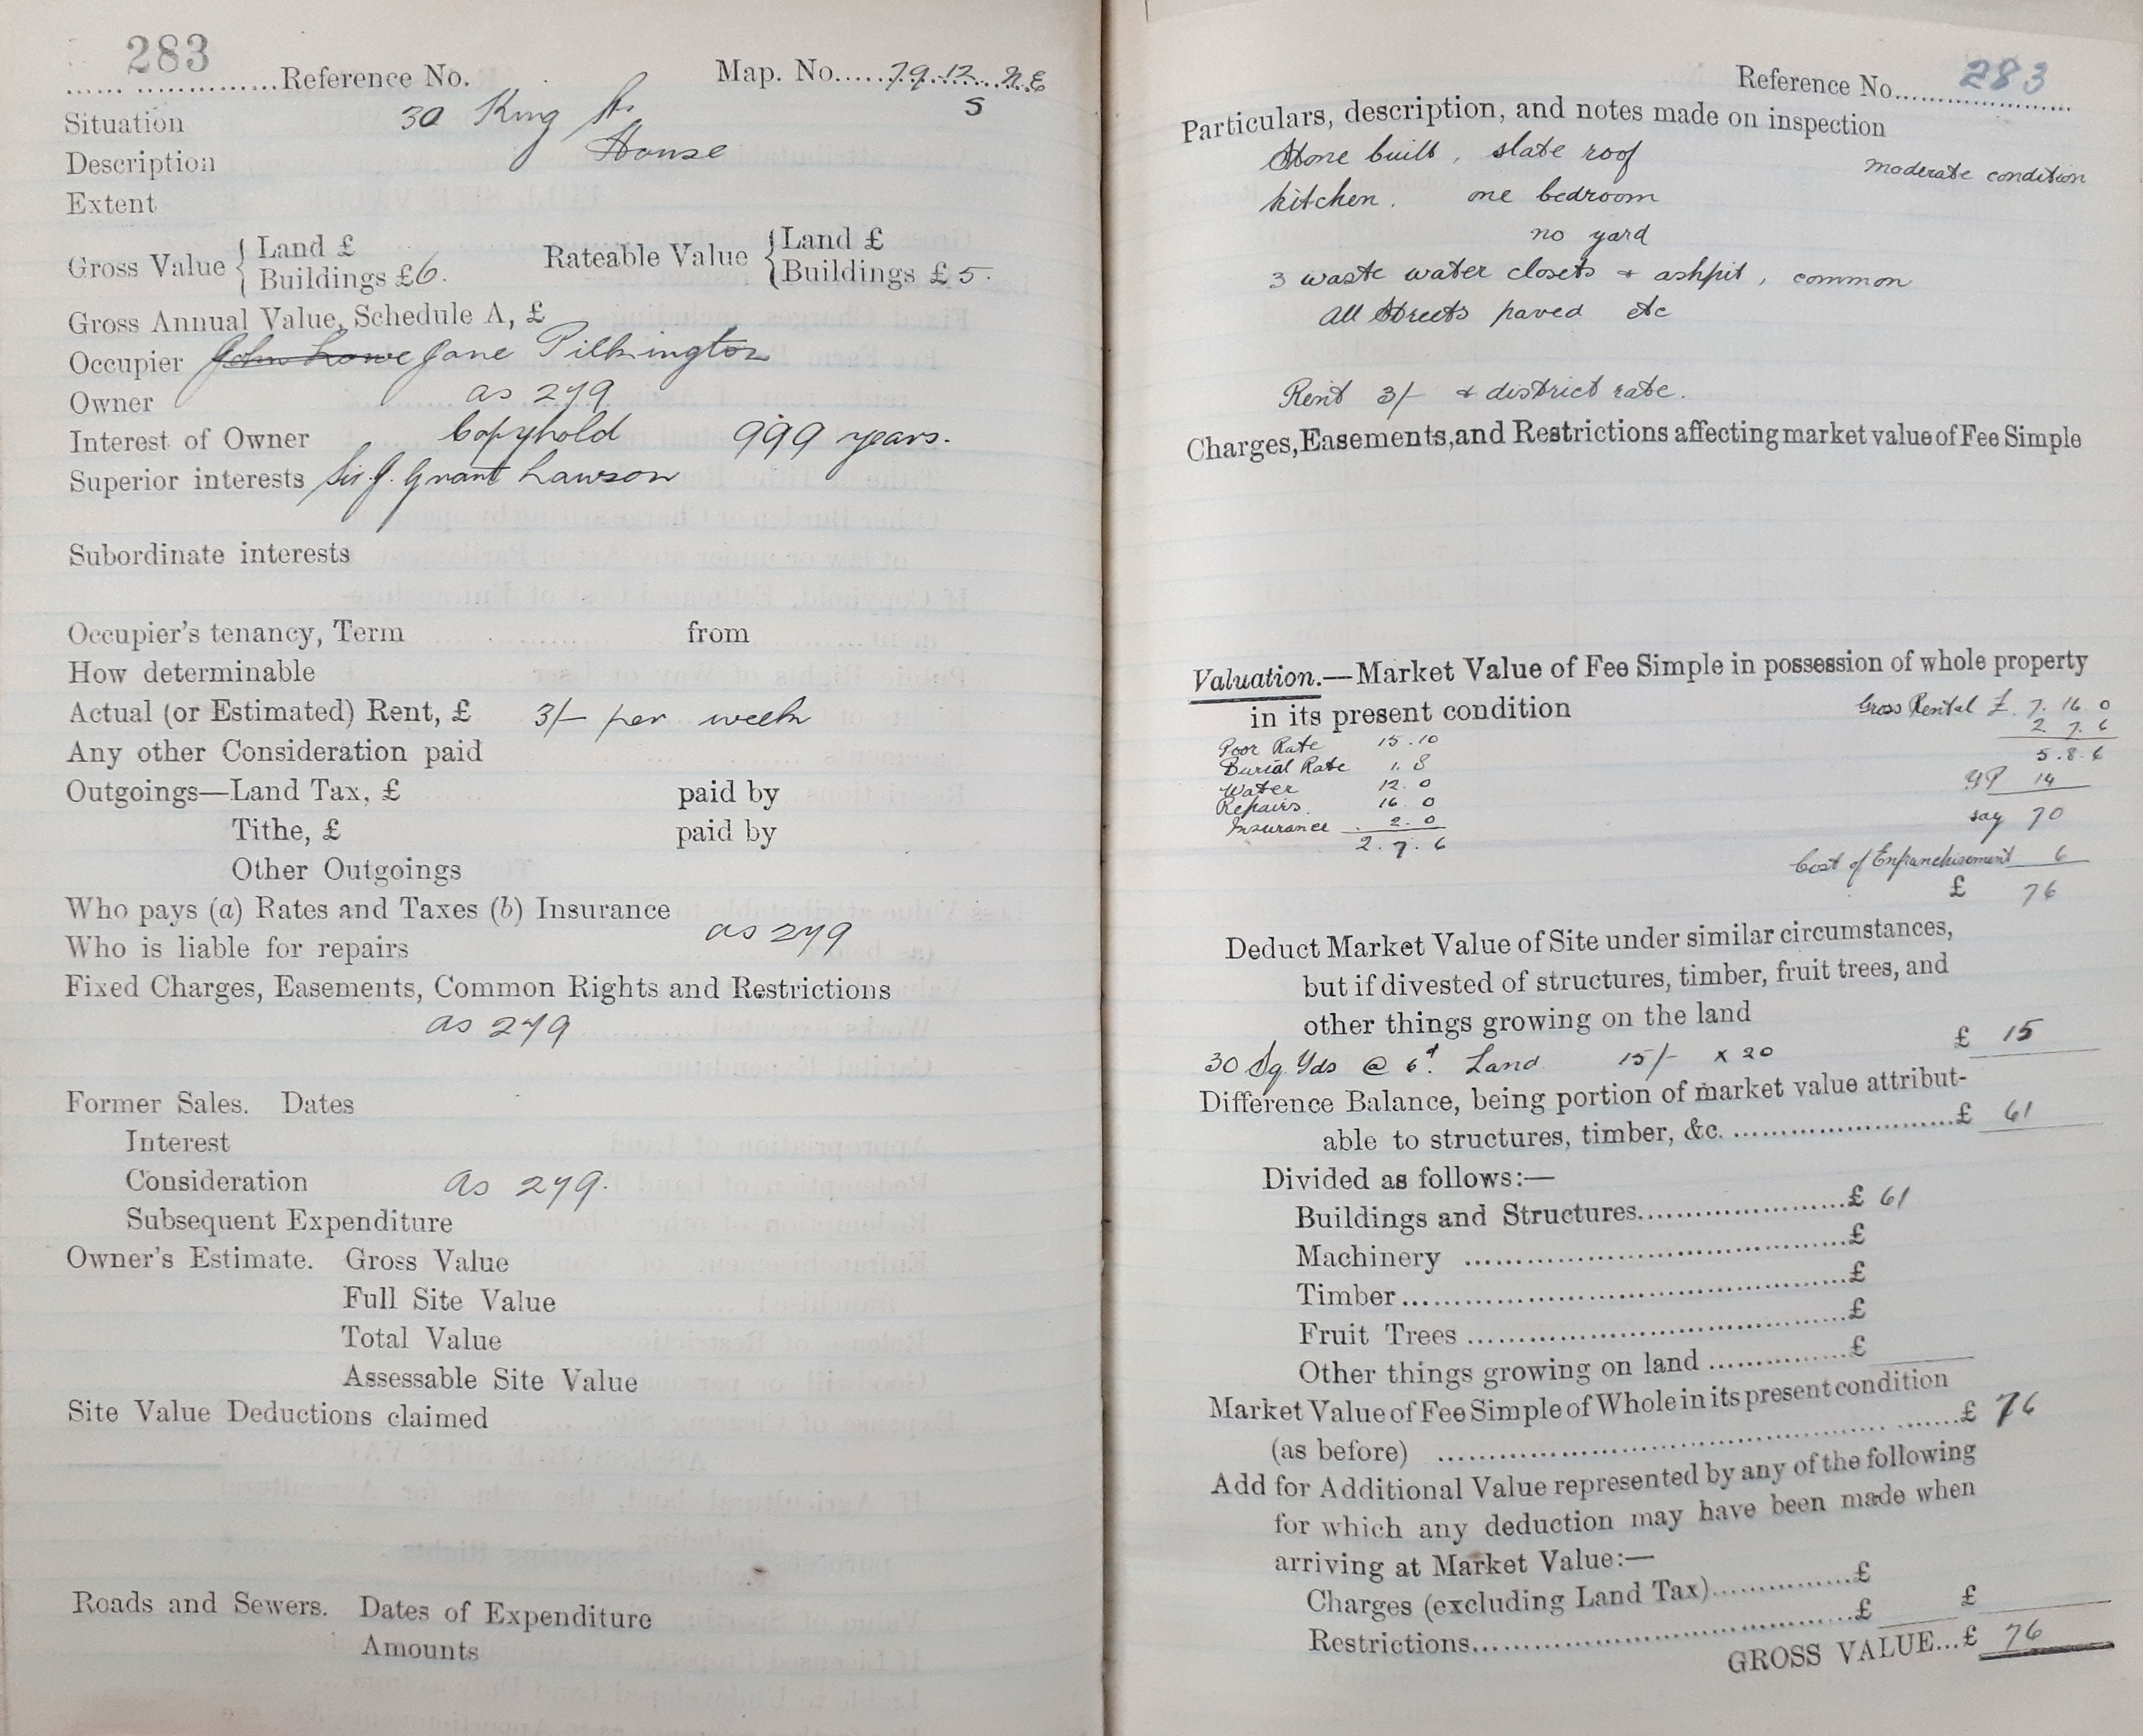 283
Reference No. Map. No. 79.12. N.E
S
Situation 30 King St.
Description House
Extent
Gross Value { Land £ Rateable Value { Land £
Buildings £6. Buildings £5.
Gross Annual Value, Schedule A, £
Occupier John Lowe Jane Pilkington
Owner as 279
Interest of Owner Copyhold 999 years.
Superior interests Sir J. Grant Lawson
Subordinate interests
Occupier's tenancy, Term from
How determinable
Actual (or Estimated) Rent, £ 3/- per week
Any other Consideration paid
Outgoings—Land Tax, £ paid by
Tithe, £ paid by
Other Outgoings
Who pays (a) Rates and Taxes (b) Insurance
Who is liable for repairs as 279
Fixed Charges, Easements, Common Rights and Restrictions
as 279
Former Sales. Dates
Interest
Consideration as 279.
Subsequent Expenditure
Owner's Estimate. Gross Value
Full Site Value
Total Value
Assessable Site Value
Site Value Deductions claimed
Roads and Sewers. Dates of Expenditure
Amounts
Reference No. 283
Particulars, description, and notes made on inspection
Stone built, slate roof moderate condition
kitchen. one bedroom
no yard
3 waste water closets & ashpit, common
All Streets paved etc
Rent 3/- & district rate.
Charges, Easements, and Restrictions affecting market value of Fee Simple
Valuation.—Market Value of Fee Simple in possession of whole property
in its present condition Gross Rental £ 7. 16. 0
2. 7. 6
Poor Rate 15.10
5.8.6
Burial Rate 1. 8
YP 14
Water 12. 0
Repairs. 16. 0
say 70
Insurance 2. 0
2. 7. 6
Cost of Enfranchisement 6
£ 76
Deduct Market Value of Site under similar circumstances,
but if divested of structures, timber, fruit trees, and
other things growing on the land
30 Sq. Yds @ 6d. Land 15/- x 20 £ 15
Difference Balance, being portion of market value attribut-
able to structures, timber, &c. £ 61
Divided as follows:—
Buildings and Structures £ 61
Machinery £
Timber £
Fruit Trees £
Other things growing on land £
Market Value of Fee Simple of Whole in its present condition
(as before) £ 76
Add for Additional Value represented by any of the following
for which any deduction may have been made when
arriving at Market Value:—
Charges (excluding Land Tax) £
Restrictions £ £
GROSS VALUE...£ 76